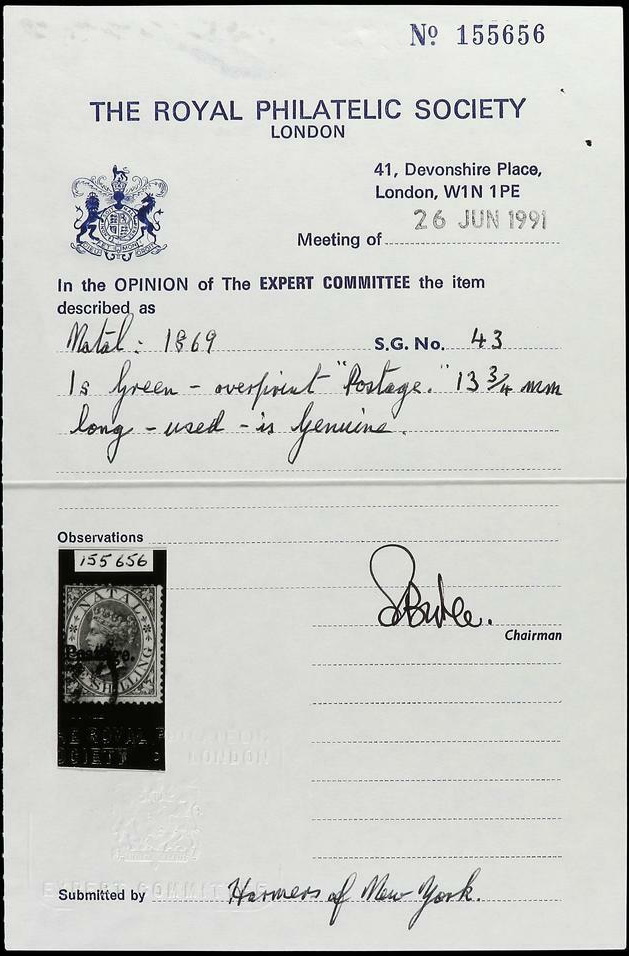 Nº 155656
THE ROYAL PHILATELIC SOCIETY
LONDON
41, Devonshire Place,
London, W1N 1PE
Meeting of 26 JUN 1991
In the OPINION of The EXPERT COMMITTEE the item
described as
Natal: 1869 S.G. No. 43
1s Green - overprint "Postage." 13 3/4 mm
long - used - is Genuine.
Observations
155656
NATAL
Postage.
SHILLING
Chairman
THE ROYAL PHILATELIC
SOCIETY LONDON
EXPERT COMMITTEE
Submitted by Harmers of New York.